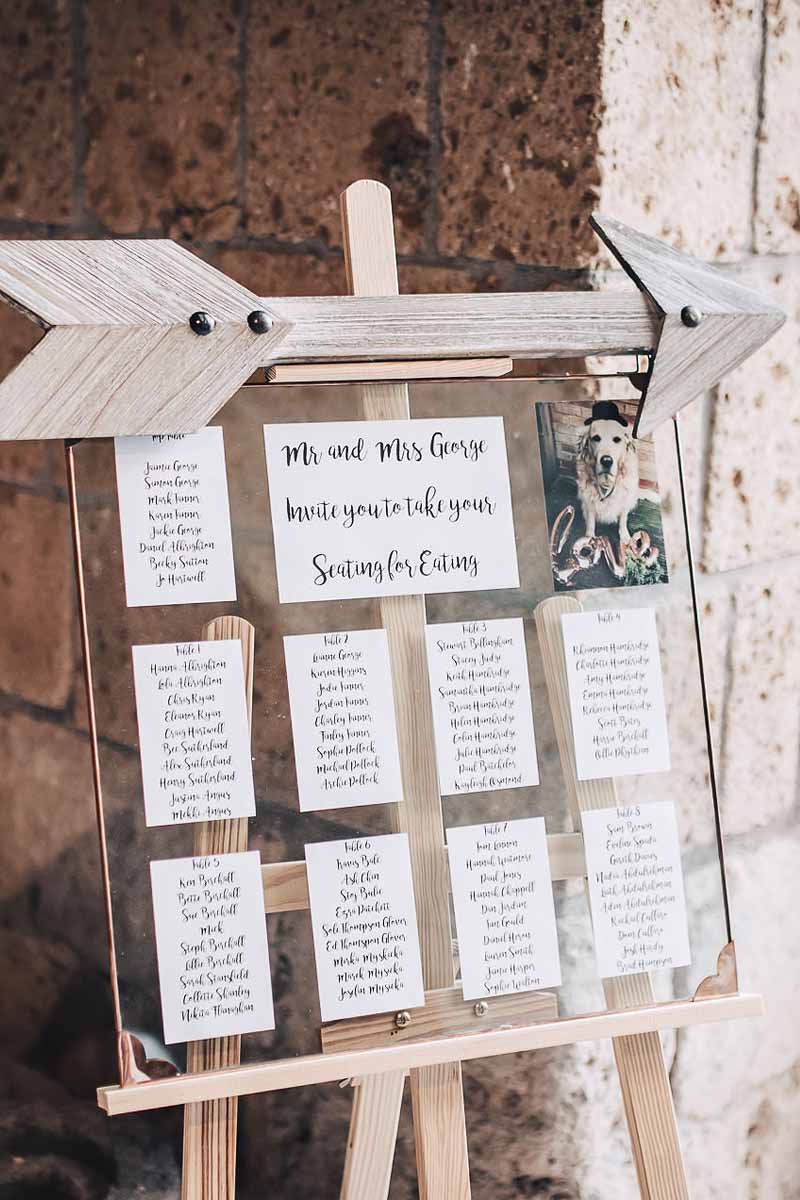 Mr and Mrs George
Invite you to take your
Seating for Eating
Top Table
Jaimie George
Simon George
Mark Finner
Karen Finner
Jackie George
Daniel Albrighton
Becky Sutton
Jo Hartwell
Table 1
Hanna Albrighton
Lola Albrighton
Chris Ryan
Eleanor Ryan
Craig Hartwell
Bec Sutherland
Alex Sutherland
Henry Sutherland
Justina Angus
Mekki Angus
Table 2
Leanne George
Kieren Higgins
Jodie Finner
Jordan Finner
Charley Finner
Finley Finner
Sophie Pollock
Michael Pollock
Archie Pollock
Table 3
Stewart Bellingham
Stacey Judge
Keith Hambridge
Samantha Hambridge
Brian Hambridge
Helen Hambridge
Colin Hambridge
Julie Hambridge
Paul Batchelor
Kayleigh Osmond
Table 4
Rhiannon Hambridge
Charlotte Hambridge
Amy Hambridge
Emma Hambridge
Rebecca Hambridge
Scott Bates
Harrie Birchall
Ollie
Table 5
Ken Birchall
Bette Birchall
Sue Birchall
Mick
Steph Birchall
Lillie Birchall
Sarah Stansfield
Collette Shanley
Nikita Flanighan
Table 6
Karis Bale
Ash Chin
Stoy Bulie
Ezra Pitchett
Soli Thompson Glover
Ed Thompson Glover
Mirka Myskicka
Marek Mysicka
Joselin Mysicka
Table 7
Tom Lennon
Hannah Whitmore
Paul Jones
Hannah Chappell
Dan Jordan
Ian Gould
Daniel Heron
Lauren Smith
Jamie Harper
Sophie Walton
Table 8
Sam Brown
Eveline Spada
Gareth Davies
Nadia Abdulrehman
Laith Abdulrehman
Aden Abdulrehman
Rachael Calliso
Dom Calliso
Josh Hardy
Brad Hampson